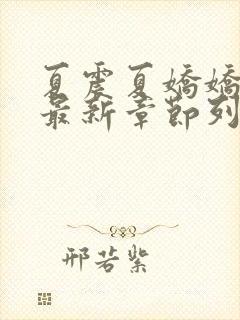 夏震夏嬌嬌
最新章節列
邢若紫